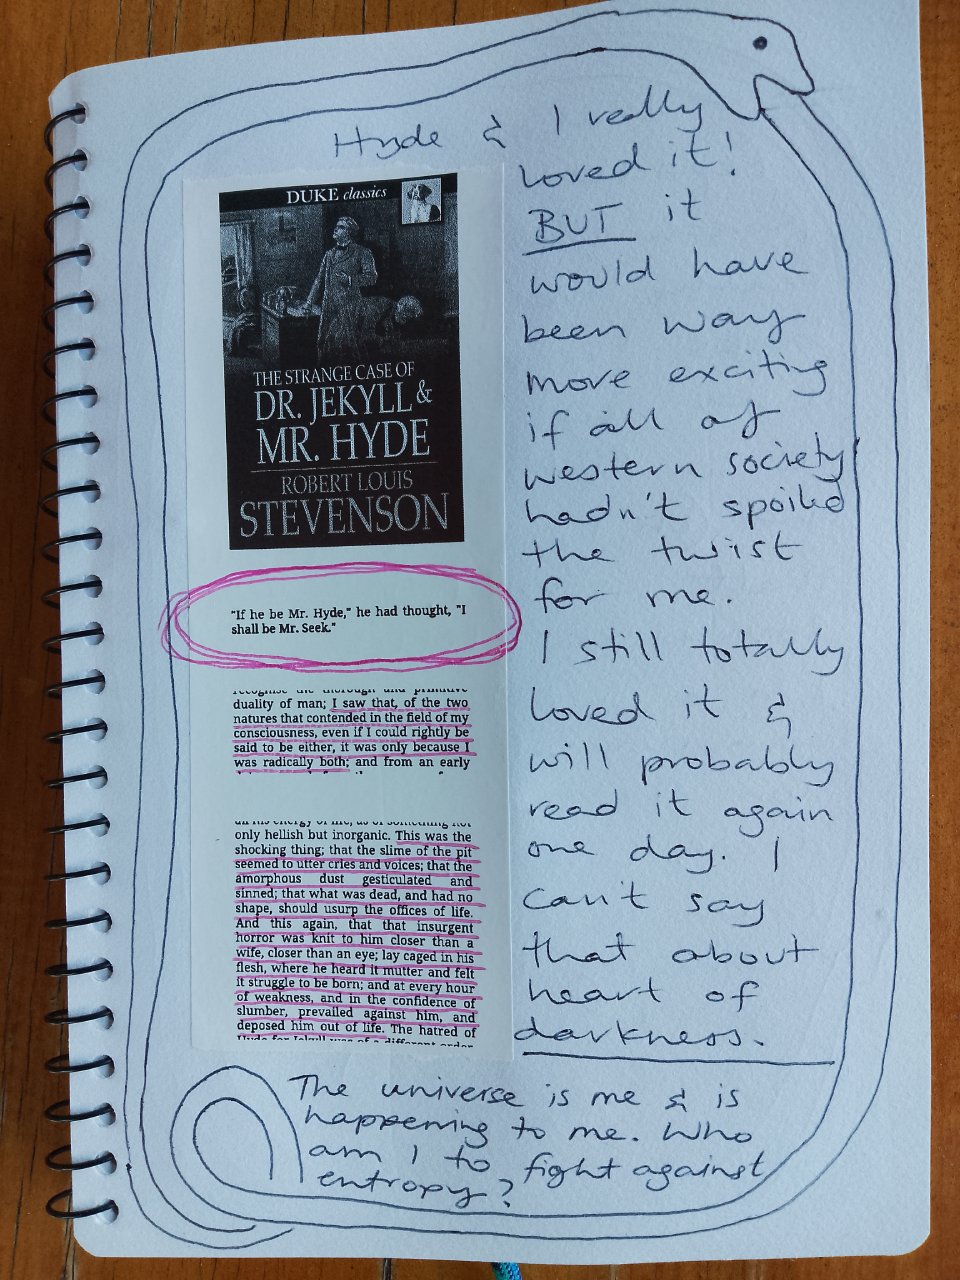 Hyde & I really
loved it!
BUT it
would have
been way
more exciting
if all of
western society
hadn't spoiled
the twist
for me.
I still totally
loved it &
will probably
read it again
one day. I
can't say
that about
heart of
darkness.
DUKE classics
THE STRANGE CASE OF
DR. JEKYLL &
MR. HYDE
ROBERT LOUIS
STEVENSON
"If he be Mr. Hyde," he had thought, "I
shall be Mr. Seek."
recognise the thorough and primitive
duality of man; I saw that, of the two
natures that contended in the field of my
consciousness, even if I could rightly be
said to be either, it was only because I
was radically both; and from an early
all his energy of life, as of something not
only hellish but inorganic. This was the
shocking thing; that the slime of the pit
seemed to utter cries and voices; that the
amorphous dust gesticulated and
sinned; that what was dead, and had no
shape, should usurp the offices of life.
And this again, that that insurgent
horror was knit to him closer than a
wife, closer than an eye; lay caged in his
flesh, where he heard it mutter and felt
it struggle to be born; and at every hour
of weakness, and in the confidence of
slumber, prevailed against him, and
deposed him out of life. The hatred of
Hyde for Jekyll was of a different order
The universe is me & is
happening to me. Who
am I to fight against
entropy?